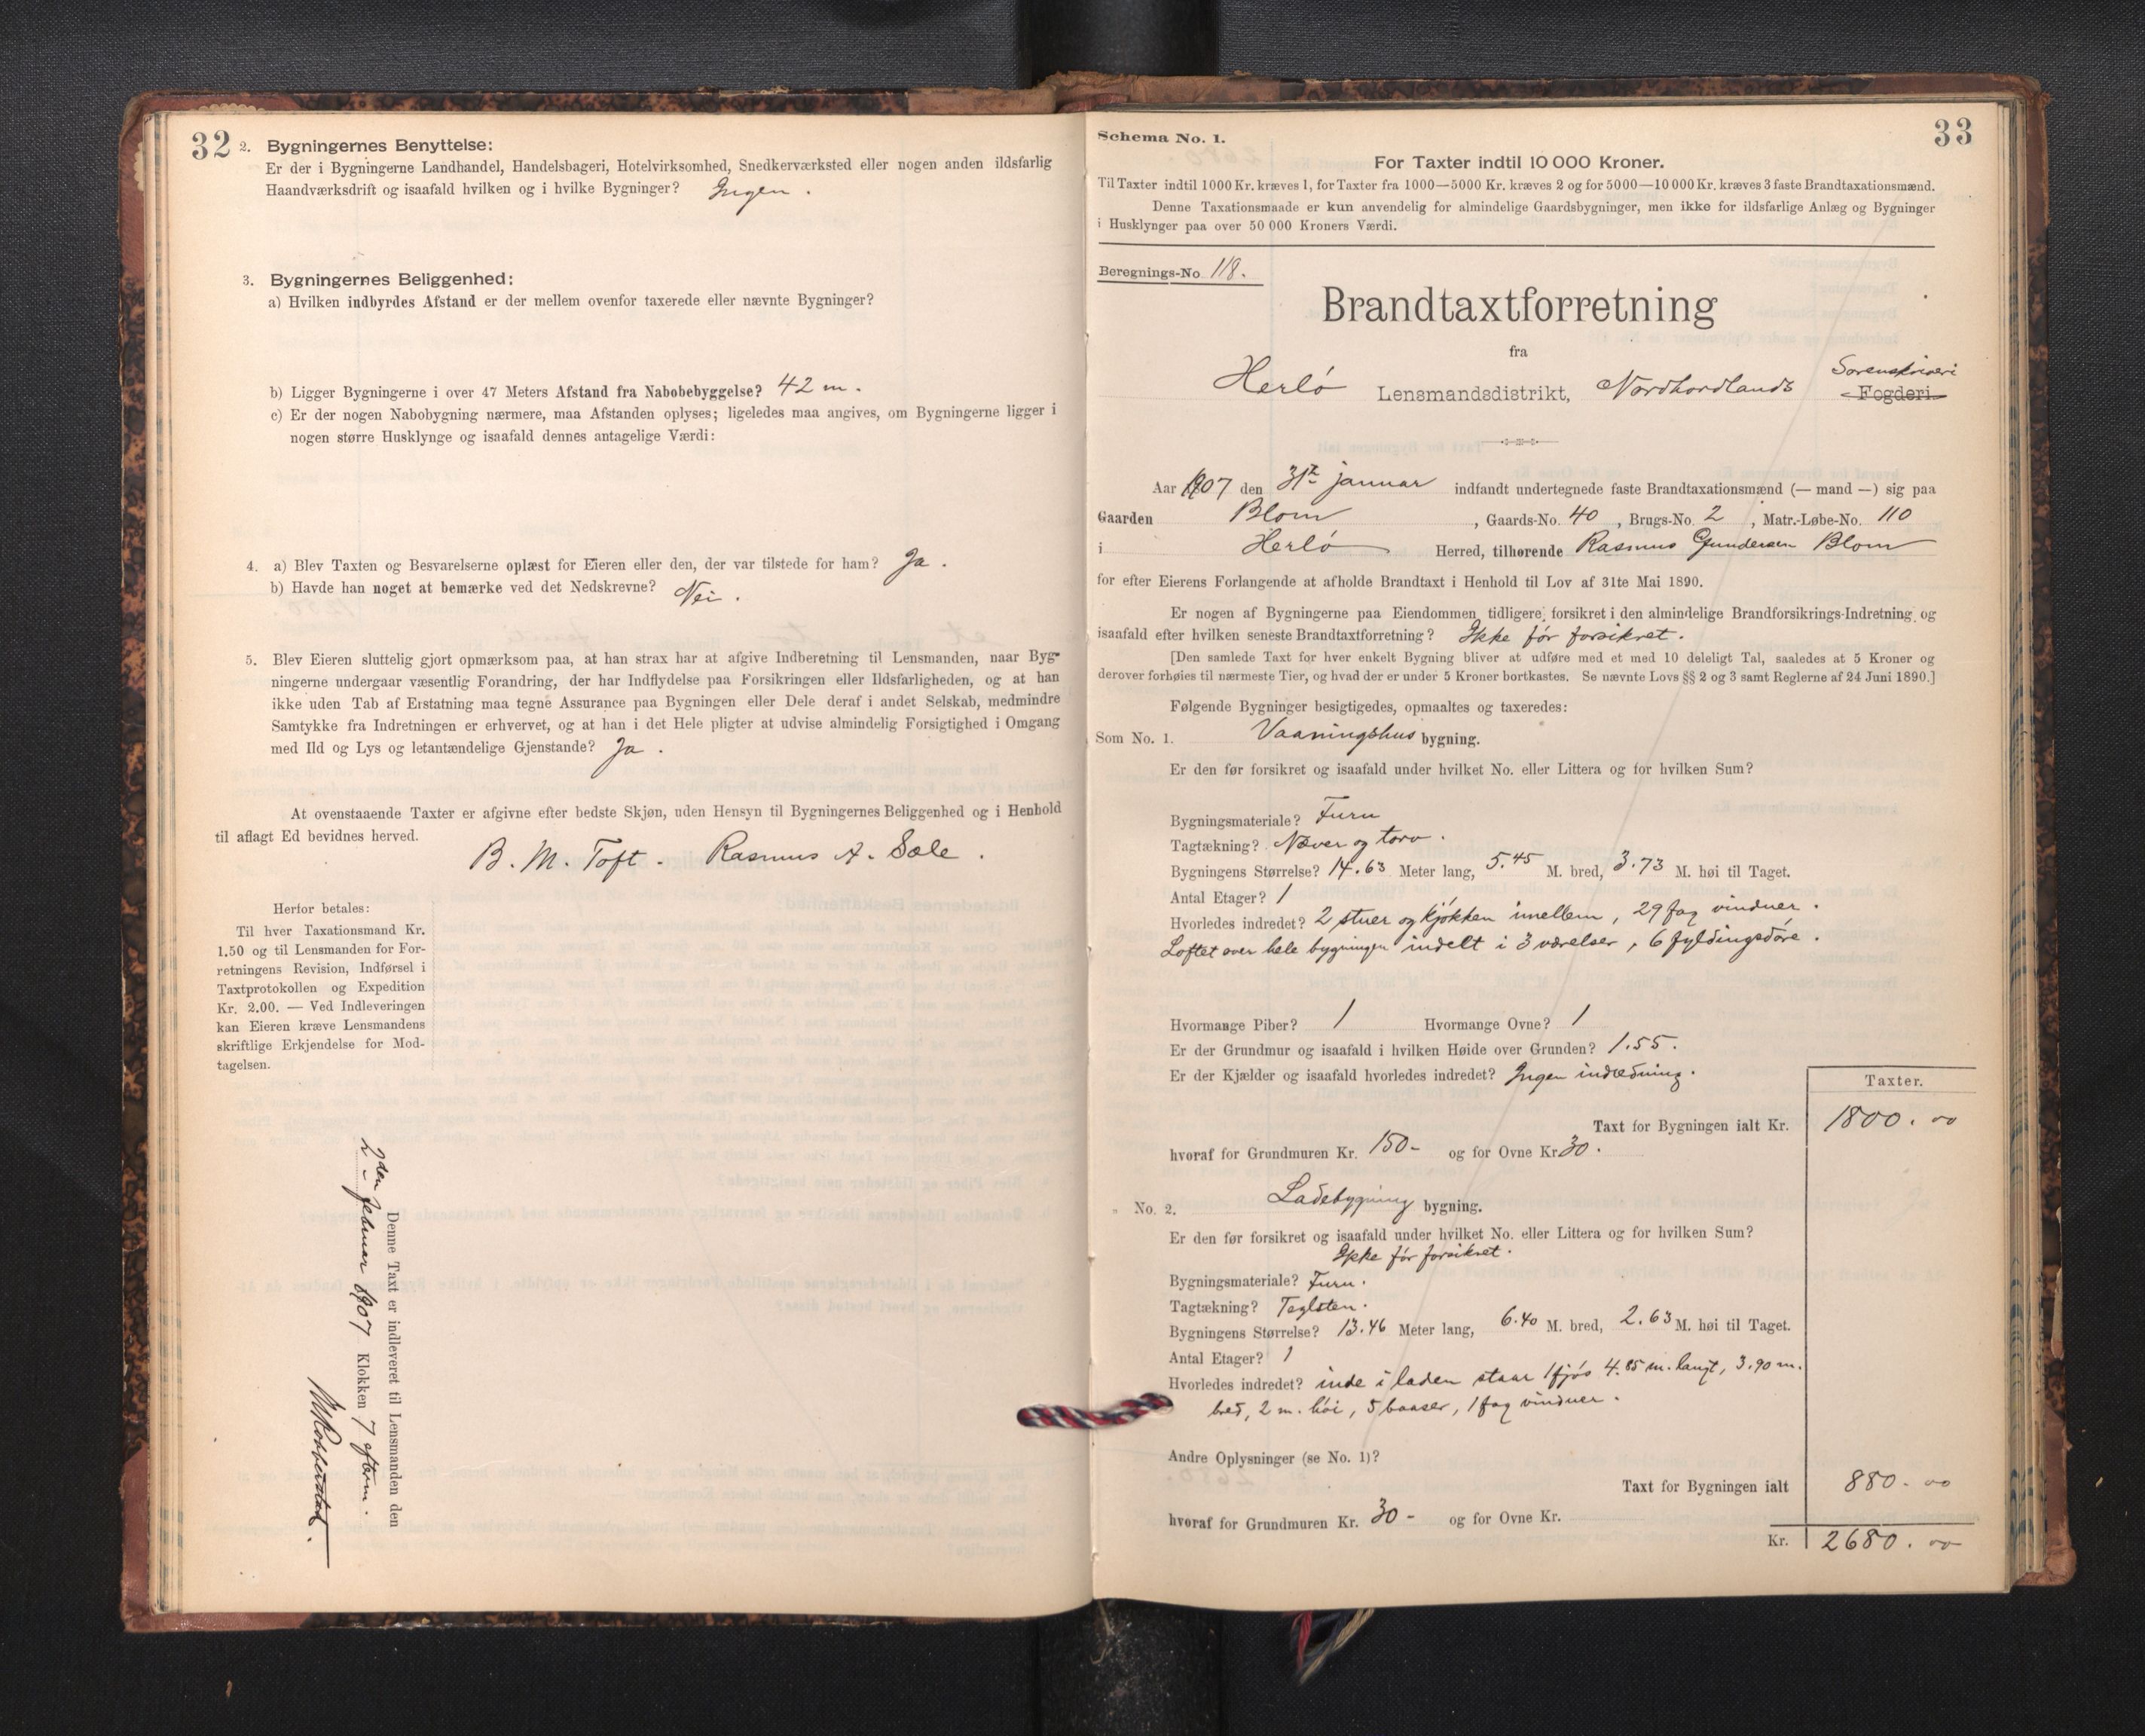 32
2. Bygningernes Benyttelse:
Er der i Bygningerne Landhandel, Handelsbageri, Hotelvirksomhed, Snedkerværksted eller nogen anden ildsfarlig
Haandværksdrift og isaafald hvilken og i hvilke Bygninger? Ingen.
3. Bygningernes Beliggenhed:
a) Hvilken indbyrdes Afstand er der mellem ovenfor taxerede eller nævnte Bygninger?
b) Ligger Bygningerne i over 47 Meters Afstand fra Nabobebyggelse? 42 m.
c) Er der nogen Nabobygning nærmere, maa Afstanden oplyses; ligeledes maa angives, om Bygningerne ligger i
nogen større Husklynge og isaafald dennes antagelige Værdi:
4. a) Blev Taxten og Besvarelserne oplæst for Eieren eller den, der var tilstede for ham? Ja.
b) Havde han noget at bemærke ved det Nedskrevne? Nei.
5. Blev Eieren sluttelig gjort opmærksom paa, at han strax har at afgive Indberetning til Lensmanden, naar Byg-
ningerne undergaar væsentlig Forandring, der har Indflydelse paa Forsikringen eller Ildsfarligheden, og at han
ikke uden Tab af Erstatning maa tegne Assurance paa Bygningen eller Dele deraf i andet Selskab, medmindre
Samtykke fra Indretningen er erhvervet, og at han i det Hele pligter at udvise almindelig Forsigtighed i Omgang
med Ild og Lys og letantændelige Gjenstande? Ja.
At ovenstaaende Taxter er afgivne efter bedste Skjøn, uden Hensyn til Bygningernes Beliggenhed og i Henhold
til aflagt Ed bevidnes herved.
B. M. Toft. Rasmus A. Sæle.
Herfor betales:
Til hver Taxationsmand Kr.
1.50 og til Lensmanden for For-
retningens Revision, Indførsel i
Taxtprotokollen og Expedition
Kr. 2.00. — Ved Indleveringen
kan Eieren kræve Lensmandens
skriftlige Erkjendelse for Mod-
tagelsen.
Denne Taxt er indleveret til Lensmanden den
2den februar 1907 Klokken 7 efterm.
33
Schema No. 1.
For Taxter indtil 10 000 Kroner.
Til Taxter indtil 1000 Kr. kræves 1, for Taxter fra 1000—5000 Kr. kræves 2 og for 5000—10 000 Kr. kræves 3 faste Brandtaxationsmænd.
Denne Taxationsmaade er kun anvendelig for almindelige Gaardsbygninger, men ikke for ildsfarlige Anlæg og Bygninger
i Husklynger paa over 50 000 Kroners Værdi.
Beregnings-No 118.
Brandtaxtforretning
fra
Herlö Lensmandsdistrikt, Nordhordlands Sorenskriveri Fogderi
Aar 1907 den 31te januar indfandt undertegnede faste Brandtaxationsmænd (— mand —) sig paa
Gaarden Blom, Gaards-No. 40, Brugs-No. 2, Matr.-Løbe-No. 110
i Herlö Herred, tilhørende Rasmus Gundersen Blom
for efter Eierens Forlangende at afholde Brandtaxt i Henhold til Lov af 31te Mai 1890.
Er nogen af Bygningerne paa Eiendommen tidligere forsikret i den almindelige Brandforsikrings-Indretning og
isaafald efter hvilken seneste Brandtaxtforretning? Ikke før forsikret.
[Den samlede Taxt for hver enkelt Bygning bliver at udføre med et med 10 deleligt Tal, saaledes at 5 Kroner og
derover forhøies til nærmeste Tier, og hvad der er under 5 Kroner bortkastes. Se nævnte Lovs §§ 2 og 3 samt Reglerne af 24 Juni 1890.]
Følgende Bygninger besigtigedes, opmaaltes og taxeredes:
Som No. 1. Vaaningshus bygning.
Er den før forsikret og isaafald under hvilket No. eller Littera og for hvilken Sum?
Bygningsmateriale? Furu
Tagtækning? Næver og torv.
Bygningens Størrelse? 14.63 Meter lang, 5.45 M. bred, 3.73 M. høi til Taget.
Antal Etager? 1
Hvorledes indredet? 2 stuer og kjøkken imellem, 29 fag vinduer.
Loftet over hele bygningen indelt i 3 værelser, 6 fyldingsdøre.
Hvormange Piber? 1 Hvormange Ovne? 1
Er der Grundmur og isaafald i hvilken Høide over Grunden? 1.55.
Er der Kjælder og isaafald hvorledes indredet? Ingen indredning.
Taxter.
Taxt for Bygningen ialt Kr. 1800.00
hvoraf for Grundmuren Kr. 150- og for Ovne Kr 30.
" No. 2. Ladebygning bygning.
Er den før forsikret og isaafald under hvilket No. eller Littera og for hvilken Sum?
Ikke før forsikret.
Bygningsmateriale? Furu.
Tagtækning? Teglsten.
Bygningens Størrelse? 13.46 Meter lang, 6.40 M. bred, 2.63 M. høi til Taget.
Antal Etager? 1
Hvorledes indredet? inde i laden staar 1 fjøs 4.85 m. langt, 3.90 m.
bred, 2 m. høi, 5 baaser, 1 fag vinduer.
Andre Oplysninger (se No. 1)?
Taxt for Bygningen ialt 880.00
hvoraf for Grundmuren Kr. 30- og for Ovne Kr.
Kr. 2680.00